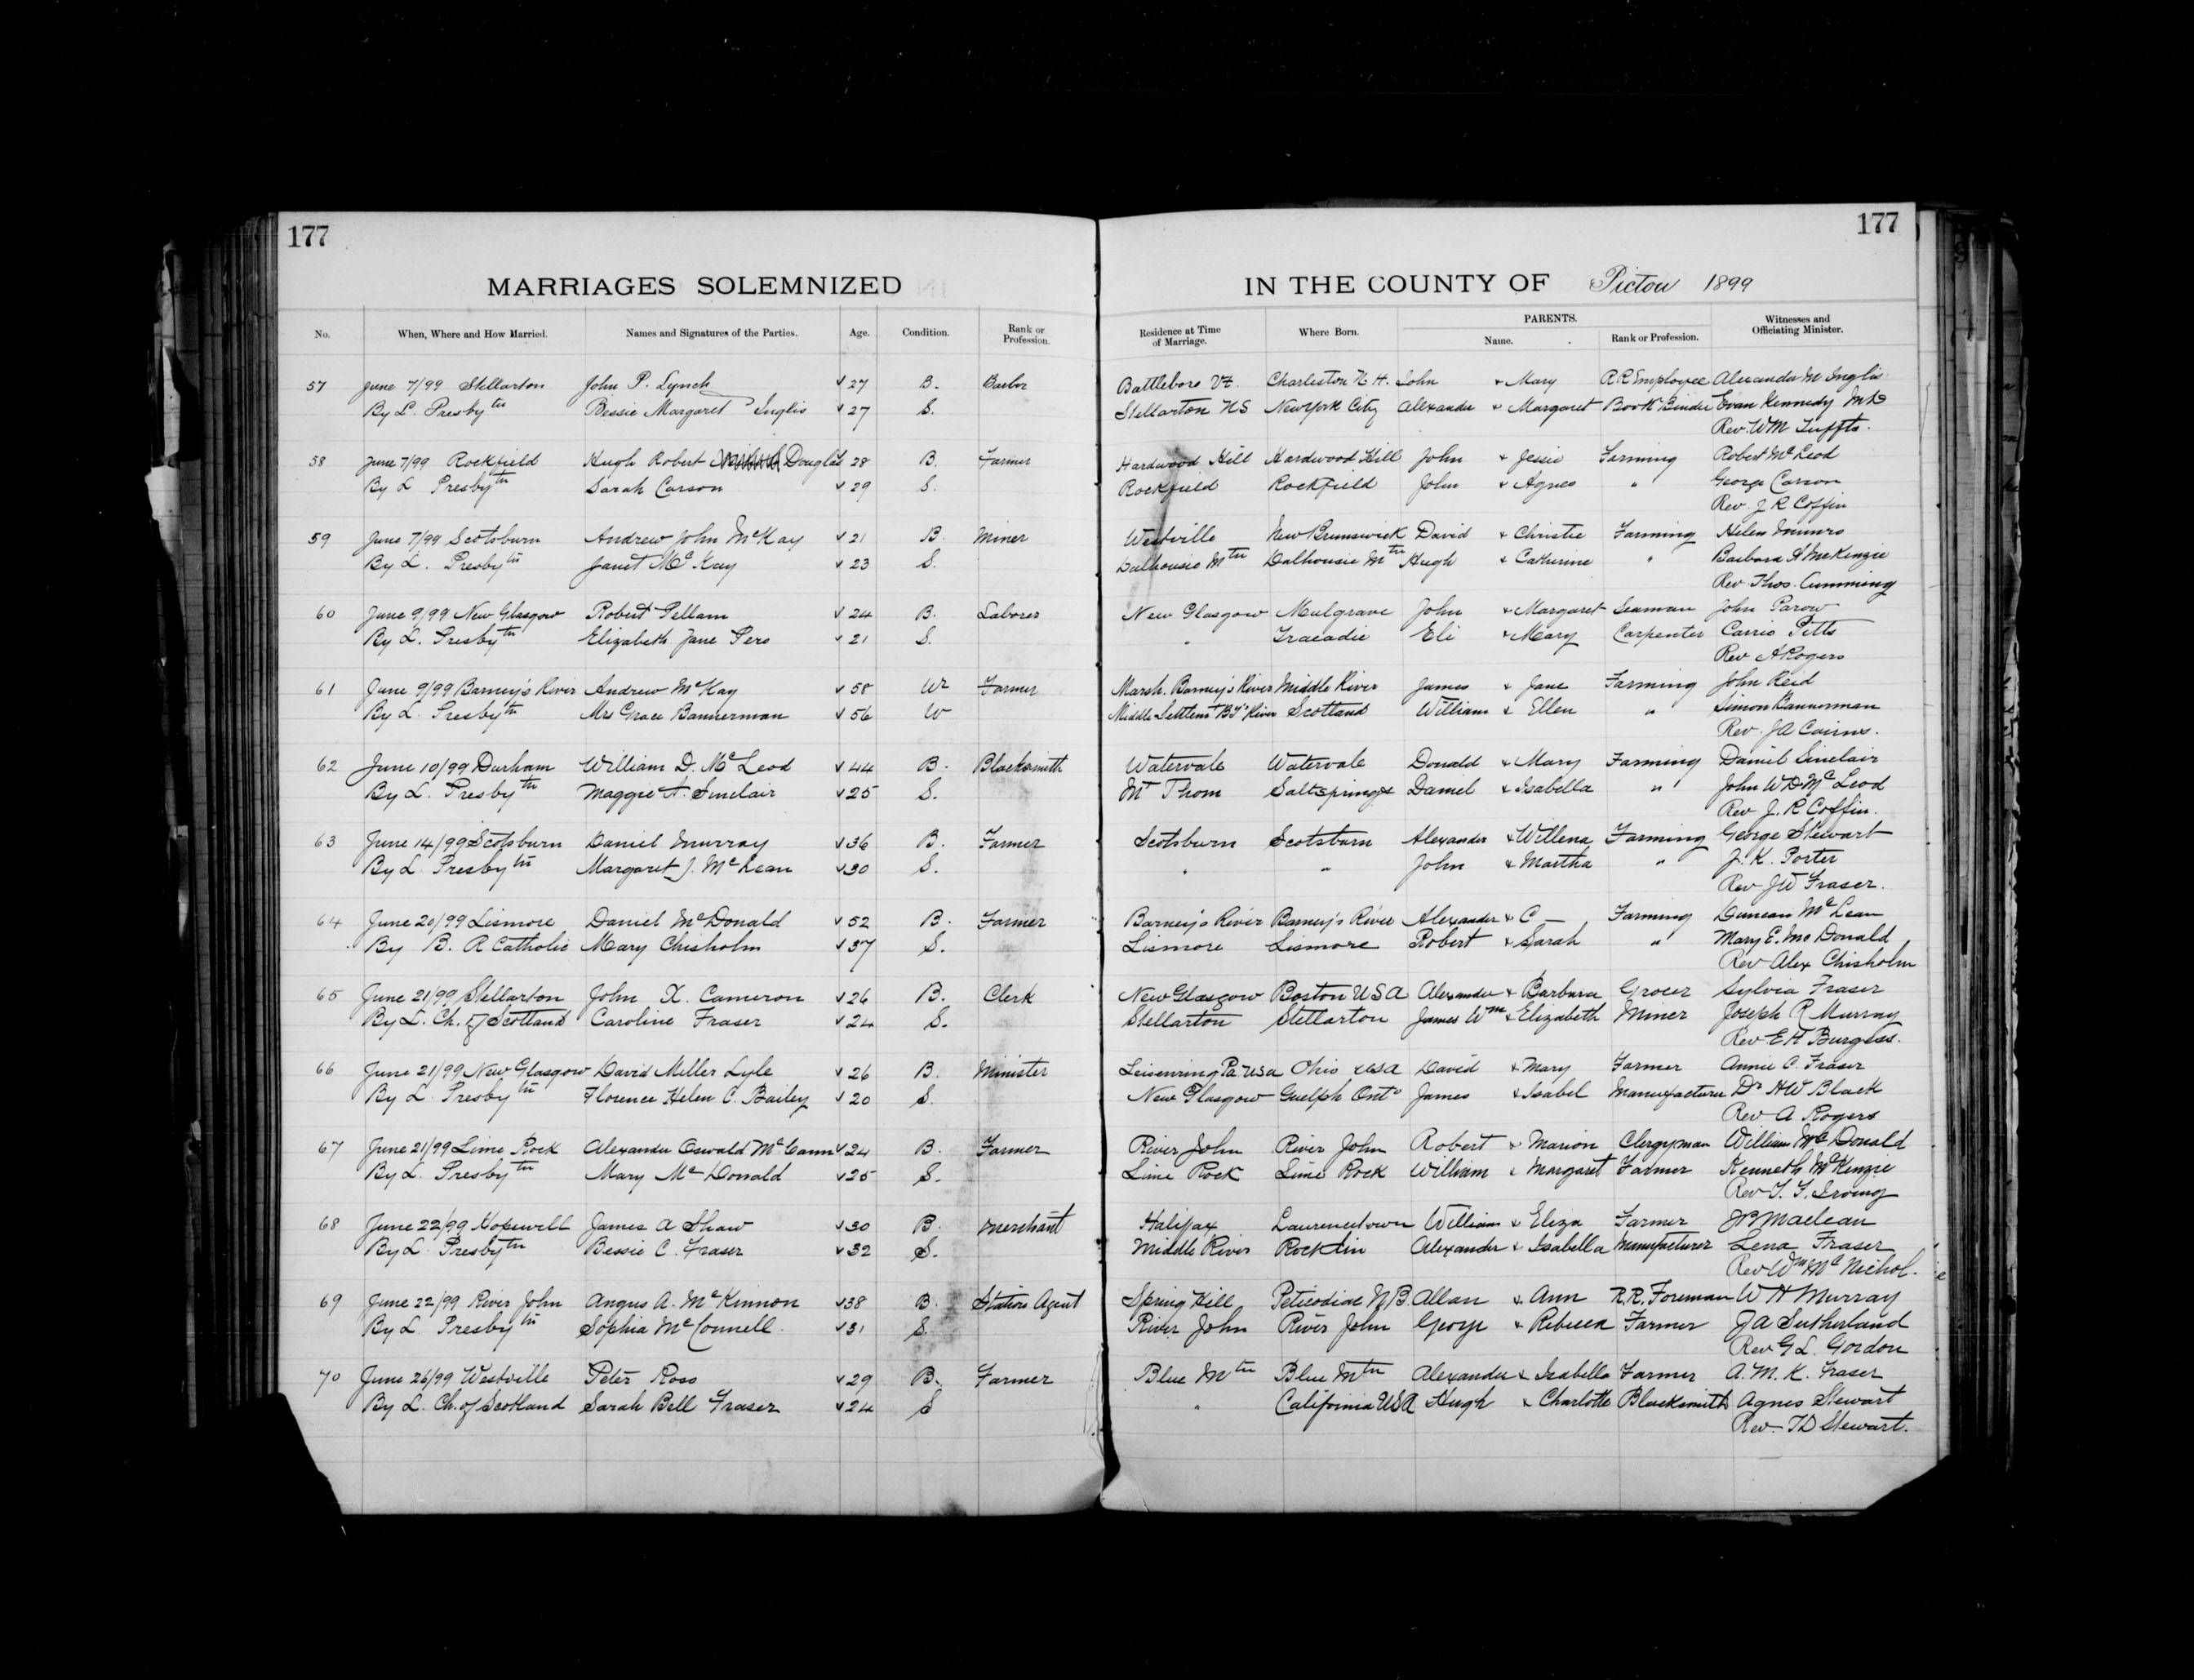 177 177
MARRIAGES SOLEMNIZED IN THE COUNTY OF Pictou 1899
No. When, Where and How Married. Names and Signatures of the Parties. Age. Condition. Rank or Profession. Residence at Time of Marriage. Where Born. PARENTS. Name. Rank or Profession. Witnesses and Officiating Minister.
57 June 7/99 Stellarton John P. Lynch 27 B. Barber Battleboro Vt. Charleston N.H. John & Mary R R Employee Alexander M Inglis
By L. Presbytn Bessie Margaret Inglis 27 S. Stellarton NS New York City Alexander & Margaret Book Binder Evan Kennedy MD
Rev. WM Tuffts.
58 June 7/99 Rockfield Hugh Robert Douglas 28 B. Farmer Hardwood Hill Hardwood Hill John & Jessie Farming Robert McLeod
By L Presbytn Sarah Carson 29 S. Rockfield Rockfield John & Agnes " George Carson
Rev. J R Coffin
59 June 7/99 Scotsburn Andrew John McKay 21 B. Miner Westville New Brunswick David & Christie Farming Helen Munro
By L. Presbytn Janet McKay 23 S. Dalhousie Mtn Dalhousie Mtn Hugh & Catherine " Barbara A McKenzie
Rev. Thos. Cumming
60 June 9/99 New Glasgow Robert Pellam 24 B. Laborer New Glasgow Mulgrave John & Margaret Seaman John Parow
By L. Presbytn Elizabeth Jane Pero 21 S. " Tracadie Eli & Mary Carpenter Carrie Pitts
Rev A Rogers
61 June 9/99 Barney's River Andrew McKay 58 Wr Farmer Marsh. Barney's River Middle River James & Jane Farming John Reid
By L. Presbytn Mrs Grace Bannerman 56 W Middle Settlemt By's River Scotland William & Ellen " Simon Bannerman
Rev. J A Cairns.
62 June 10/99 Durham William D. McLeod 44 B. Blacksmith Watervale Watervale Donald & Mary Farming Daniel Sinclair
By L. Presbytn Maggie A. Sinclair 25 S. Mt Thom Saltsprings Daniel & Isabella " John W D McLeod
Rev J. R Coffin.
63 June 14/99 Scotsburn Daniel Murray 36 B. Farmer Scotsburn Scotsburn Alexander & Willena Farming George Stewart
By L. Presbytn Margaret J. McLean 30 S. " " John & Martha " J. K. Porter
Rev JW Fraser.
64 June 20/99 Lismore Daniel McDonald 52 B. Farmer Barney's River Barney's River Alexander & C — Farming Duncan McLean
By B. R Catholic Mary Chisholm 37 S. Lismore Lismore Robert & Sarah " Mary E. McDonald
Rev Alex Chisholm
65 June 21/99 Stellarton John X. Cameron 26 B. Clerk New Glasgow Boston USA Alexander & Barbara Grocer Sylvia Fraser
By L. Ch. of Scotland Caroline Fraser 24 S. Stellarton Stellarton James Wm & Elizabeth Miner Joseph R Murray
Rev E H Burgess.
66 June 21/99 New Glasgow David Miller Lyle 26 B. Minister Leisenring Pa USA Ohio USA David & Mary Farmer Annie C. Fraser
By L. Presbytn Florence Helen C. Bailey 20 S. New Glasgow Guelph Onto James & Isabel Manufacturer Dr HW Black
Rev A Rogers
67 June 21/99 Lime Rock Alexander Oswald McCann 24 B. Farmer River John River John Robert & Marion Clergyman William McDonald
By L. Presbytn Mary McDonald 25 S. Lime Rock Lime Rock William & Margaret Farmer Kenneth McKenzie
Rev T. F. Irving
68 June 22/99 Hopewell James A Shaw 30 B. Merchant Halifax Laurencetown William & Eliza Farmer JB Maclean
By L. Presbytn Bessie C. Fraser 32 S. Middle River Rocklin Alexander & Isabella Manufacturer Lena Fraser
Rev Wm McNichol.
69 June 22/99 River John Angus A. McKinnon 38 B. Station Agent Spring Hill Peticodiac N B Allan & Ann R.R. Foreman W H Murray
By L Presbytn Sophia McConnell. 31 S. River John River John George & Rebecca Farmer J A Sutherland
Rev G L. Gordon
70 June 26/99 Westville Peter Ross 29 B. Farmer Blue Mtn Blue Mtn Alexander & Isabella Farmer A. M. K. Fraser
By L. Ch. of Scotland Sarah Bell Fraser 24 S " California USA Hugh & Charlotte Blacksmith Agnes Stewart
Rev. TD Stewart.